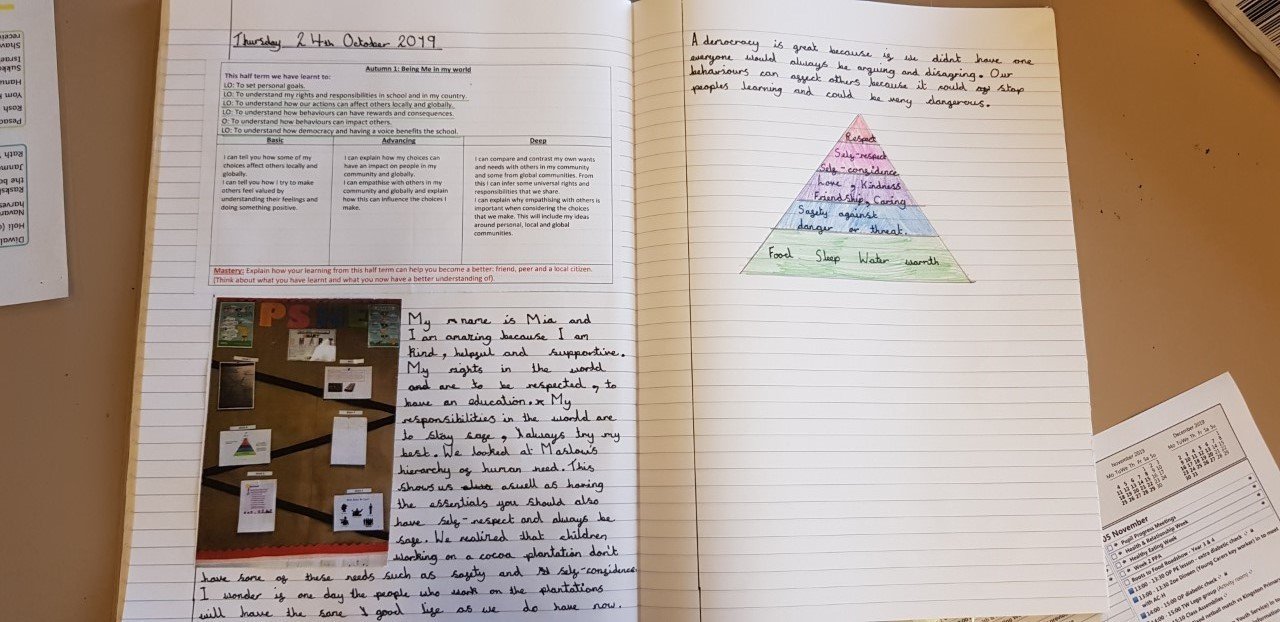 Thursday 24th October 2019
Autumn 1: Being Me in my world
This half term we have learnt to:
LO: To set personal goals.
LO: To understand my rights and responsibilities in school and in my country.
LO: To understand how our actions can affect others locally and globally.
LO: To understand how behaviours can have rewards and consequences.
O: To understand how behaviours can impact others.
LO: To understand how democracy and having a voice benefits the school.
Basic
I can tell you how some of my
choices affect others locally and
globally.
I can tell you how I try to make
others feel valued by
understanding their feelings and
doing something positive.
Advancing
I can explain how my choices can
have an impact on people in my
community and globally.
I can empathise with others in my
community and globally and explain
how this can influence the choices I
make.
Deep
I can compare and contrast my own wants
and needs with others in my community
and some from global communities. From
this I can infer some universal rights and
responsibilities that we share.
I can explain why empathising with others is
important when considering the choices
that we make. This will include my ideas
around personal, local and global
communities.
Mastery: Explain how your learning from this half term can help you become a better: friend, peer and a local citizen.
(Think about what you have learnt and what you now have a better understanding of).
PSHE
My name is Mia and
I am amazing because I am
kind, helpful and supportive.
My rights in the world
and are to be respected, to
have an education. My
responsibilities in the world are
to stay safe, I always try my
best. We looked at Maslows
hierarchy of human need. This
shows us aswell as having
the essentials you should also
have self-respect and always be
safe. We realired that children
working on a cocoa plantation don't
have some of these needs such as safety and self-confidence.
I wonder if one day the people who work on the plantations
will have the same good life as we do have now.
A democracy is great because if we didnt have one
everyone would always be arguing and disagring. Our
behaviours can affect others because it could stop
peoples learning and could be very dangerous.
Respect
Self-respect
Self-confidence
Love, Kindness
Friendship, Caring
Safety against
danger or threat.
Food Sleep Water warmth
Diwal
Holi (
Navar
harves
Raksh
the bo
Janm
Rath
Pesac
Rosh
Yom
Hanu
Sukko
Israe
Shav
November 2019
Mo Tu We Th Fr Sa Su
December 2019
Mo Tu We Th Fr Sa Su
05 November
Pupil Progress Meetings
Health & Relationship Week
Healthy Eating Week
Week 2 PPA
Roots to Food Roadshow - Year 3 & 4
13:00 - 13:30 OP PE lesson - extra diabetic check
13:00 - 13:30 Zoe Dinnen (Young Carers key worker) in to meet
with AC-H
14:00 - 15:00 OP diabetic check
14:00 - 15:00 TW Lego group (Activity room)
Class Assemblies
netball match vs Kingston Primary